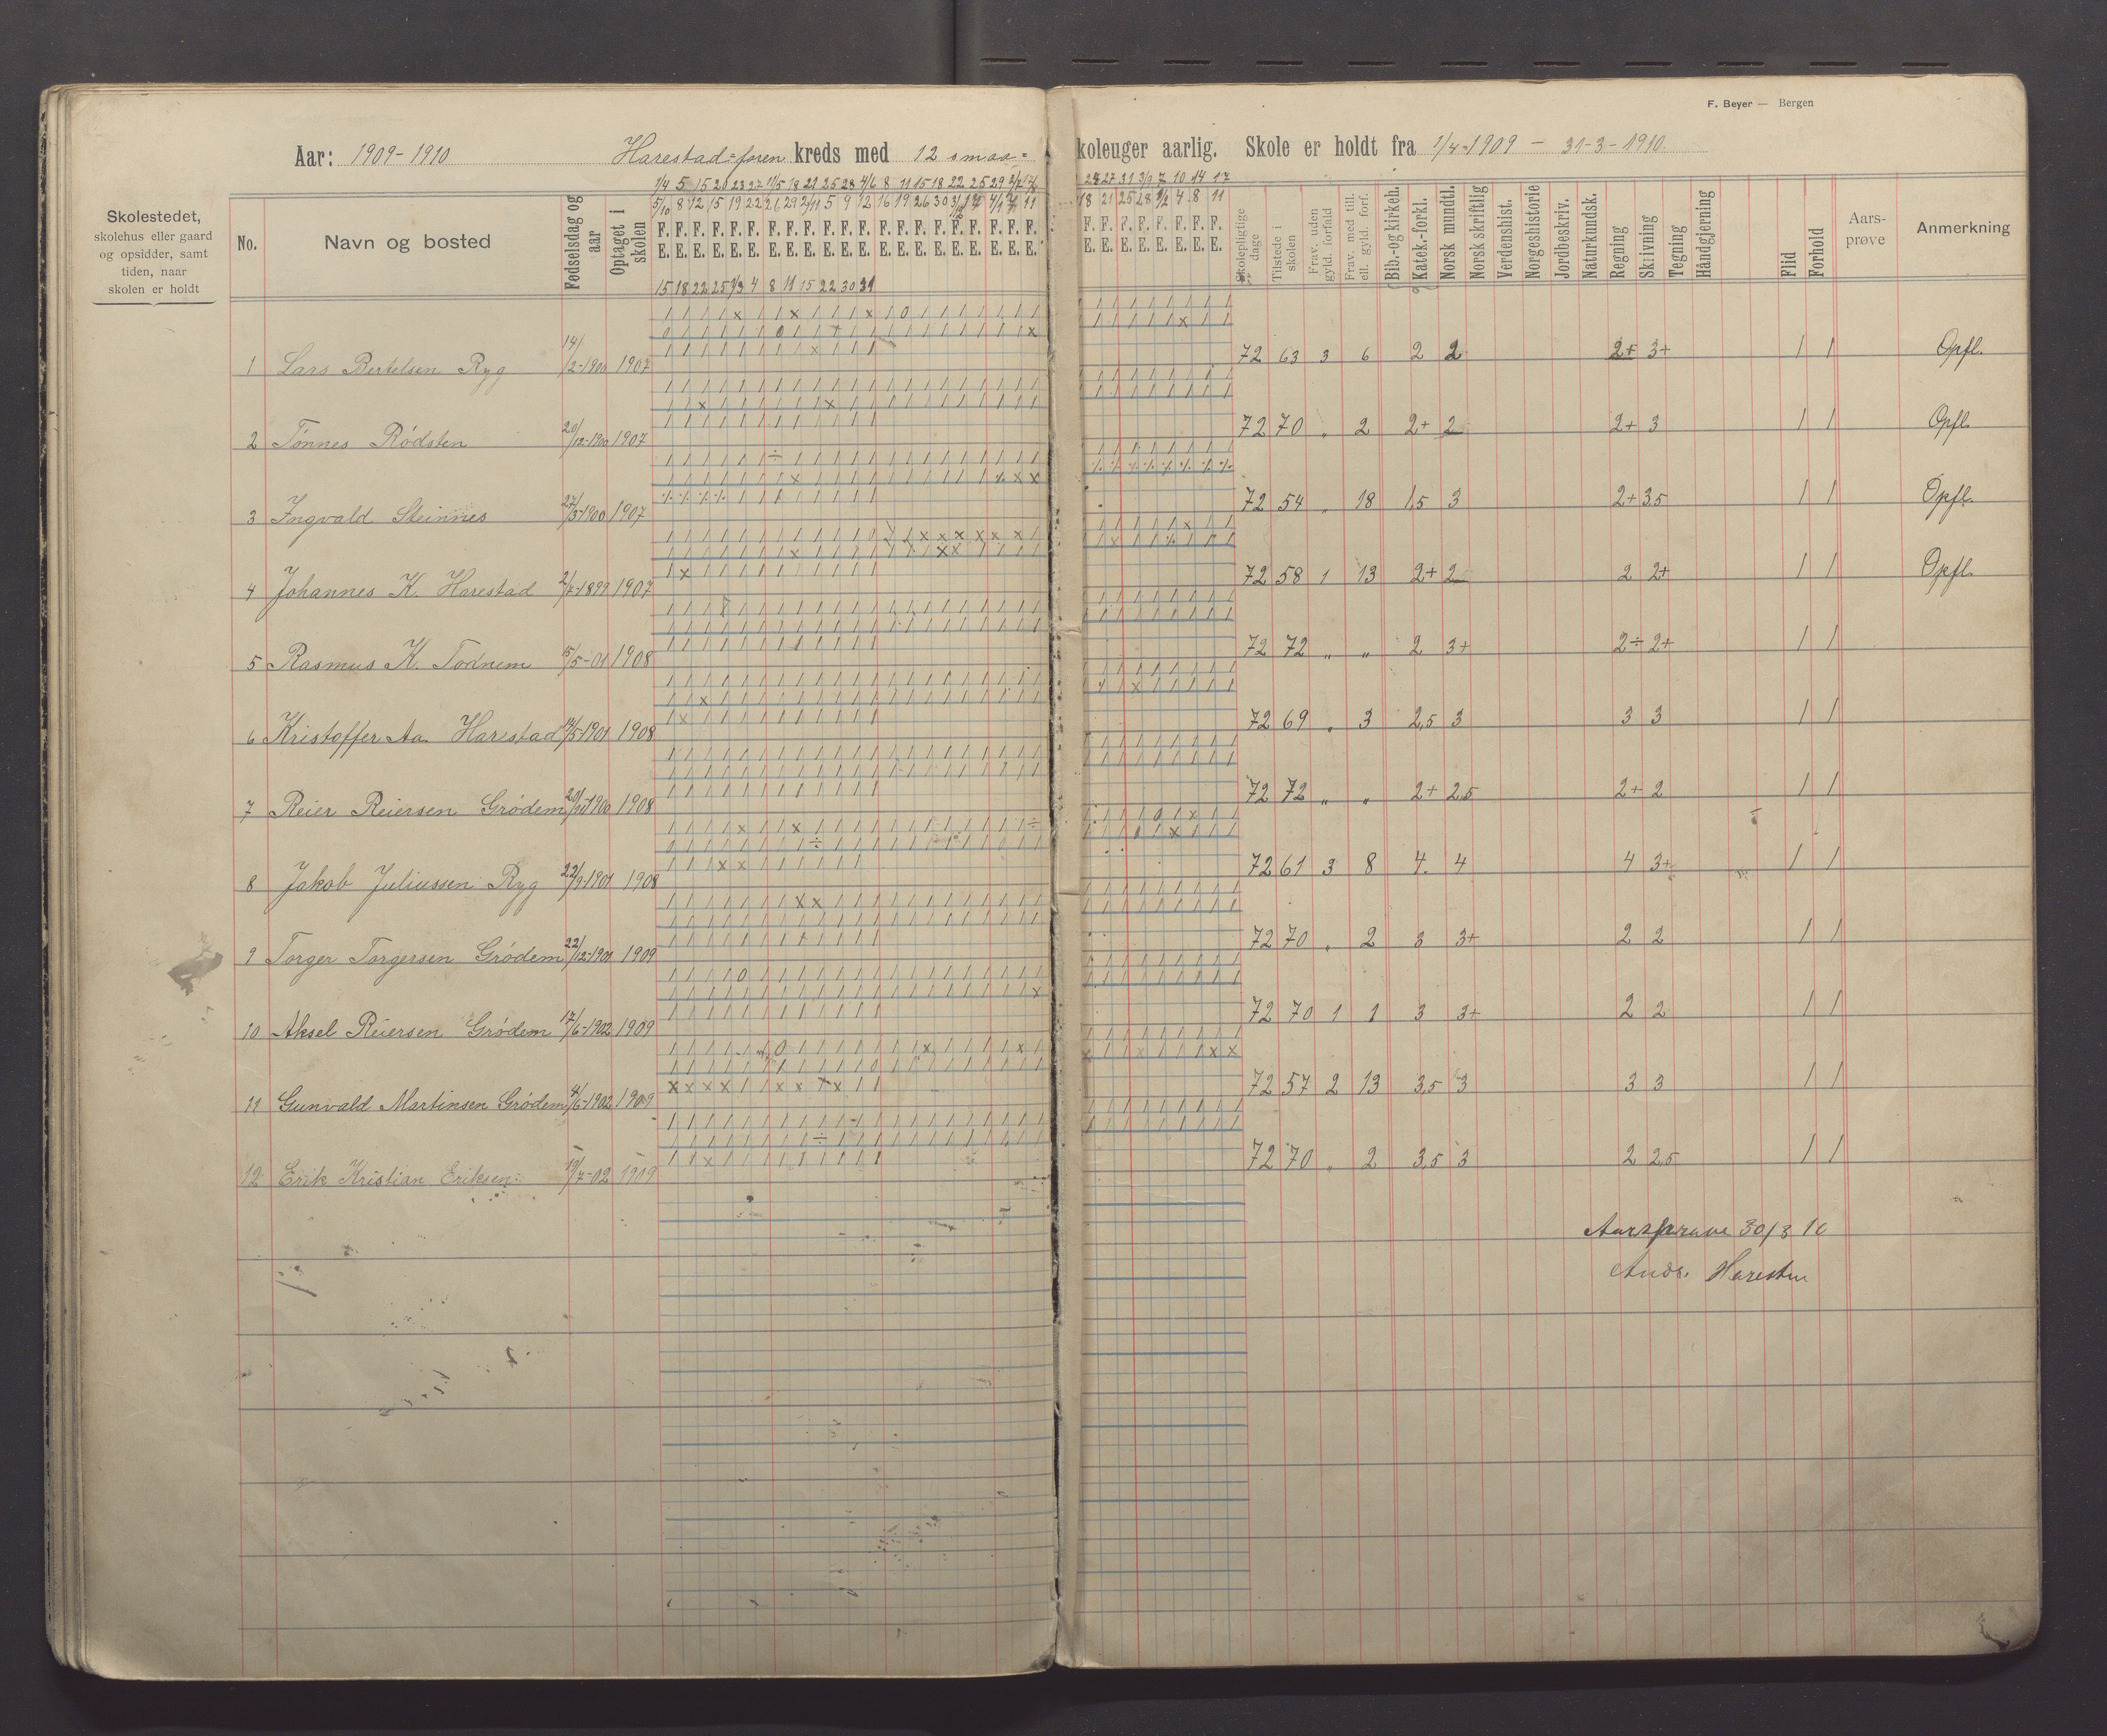 F. Beyer — Bergen
Aar: 1909-1910 Harestad=foren kreds med 12 smaa= koleuger aarlig. Skole er holdt fra 1/4-1909 - 31-3-1910
Skolestedet, skolehus eller gaard og opsidder, samt tiden, naar skolen er holdt
No. Navn og bosted Fødselsdag og aar Optaget i skolen
F. E.
15 18 22 25 1/3 4 8 11 15 22 30 31
Skolepligtige dage Tilstede i skolen Frav. uden gyld. forfald Frav. med till. ell. gyld. forf. Bib.- og kirkeh. Katek.-forkl. Norsk mundtl. Norsk skriftlig Verdenshist. Norgeshistorie Jordbeskriv. Naturkundsk. Regning Skrivning Tegning Håndgjerning Flid Forhold Aars-prøve Anmerkning
1 Lars Bertelsen Ryg 14/2-1900 1907 72 63 3 6 2 2 2+ 3+ 1 1 Opfl.
2 Tønnes Rødsten 20/12-1900 1907 72 70 „ 2 2+ 2 2+ 3 1 1 Opfl.
3 Ingvald Steinnes 27/3-1900 1907 72 54 „ 18 1,5 3 2+ 3,5 1 1 Opfl.
4 Johannes K. Harestad 2/7-1899 1907 72 58 1 13 2+ 2 2 2+ 1 1 Opfl.
5 Rasmus K. Todnem 15/5-01 1908 72 72 „ „ 2 3+ 2÷ 2+ 1 1
6 Kristoffer Aa. Harestad 14/5-1901 1908 72 69 „ 3 2,5 3 3 3 1 1
7 Reier Reiersen Grødem 20/11-1900 1908 72 72 „ „ 2+ 2,5 2+ 2 1 1
8 Jakob Juliussen Ryg 22/9-1901 1908 72 61 3 8 4. 4 4 3+ 1 1
9 Torger Torgersen Grødem 22/12-1901 1909 72 70 „ 2 3 3+ 2 2 1 1
10 Aksel Reiersen Grødem 17/6-1902 1909 72 70 1 1 3 3+ 2 2 1 1
11 Gunvald Martinsen Grødem 4/6-1902 1909 72 57 2 13 3,5 3 3 3 1 1
12 Erik Kristian Eriksen 19/7-02 1909 72 70 „ 2 3,5 3 2 2,5 1 1
Aarsprøve 30/3 10
Ands. Harestad